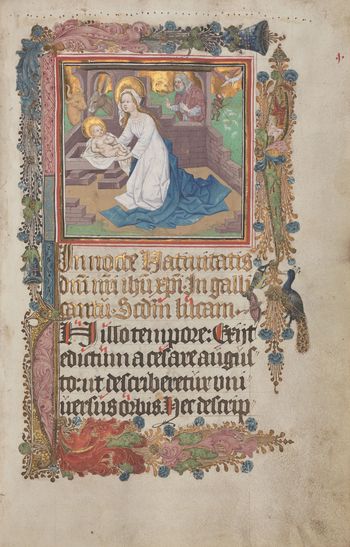 In nocte Natiuitatis
dni nri ihu xpi. In galli
cantu. Scdm lucam.
In illo tempore: Exijt
edictum a cesare augus
to: ut describeretur uni
uersus orbis. Hec descrip